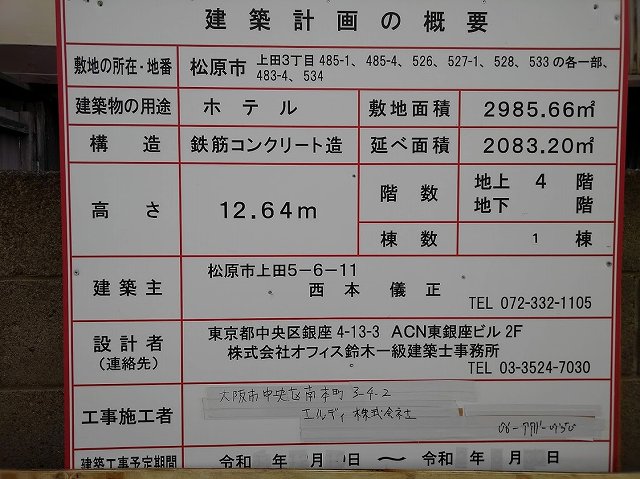 建築計画の概要
敷地の所在・地番 松原市 上田3丁目 485-1、485-4、526、527-1、528、533 の各一部、
483-4、534
建築物の用途 ホテル 敷地面積 2985.66㎡
構造 鉄筋コンクリート造 延べ面積 2083.20㎡
高さ 12.64m 階数 地上 4 階
地下 階
棟数 1 棟
建築主 松原市上田5-6-11
西本 儀正
TEL 072-332-1105
設計者 東京都中央区銀座 4-13-3 ACN東銀座ビル 2F
(連絡先) 株式会社オフィス鈴木一級建築士事務所
TEL 03-3524-7030
工事施工者 大阪市中央区南本町 3-4-2
エルディ株式会社
建築工事予定期間 令和 年 月 日 ～ 令和 年 月 日